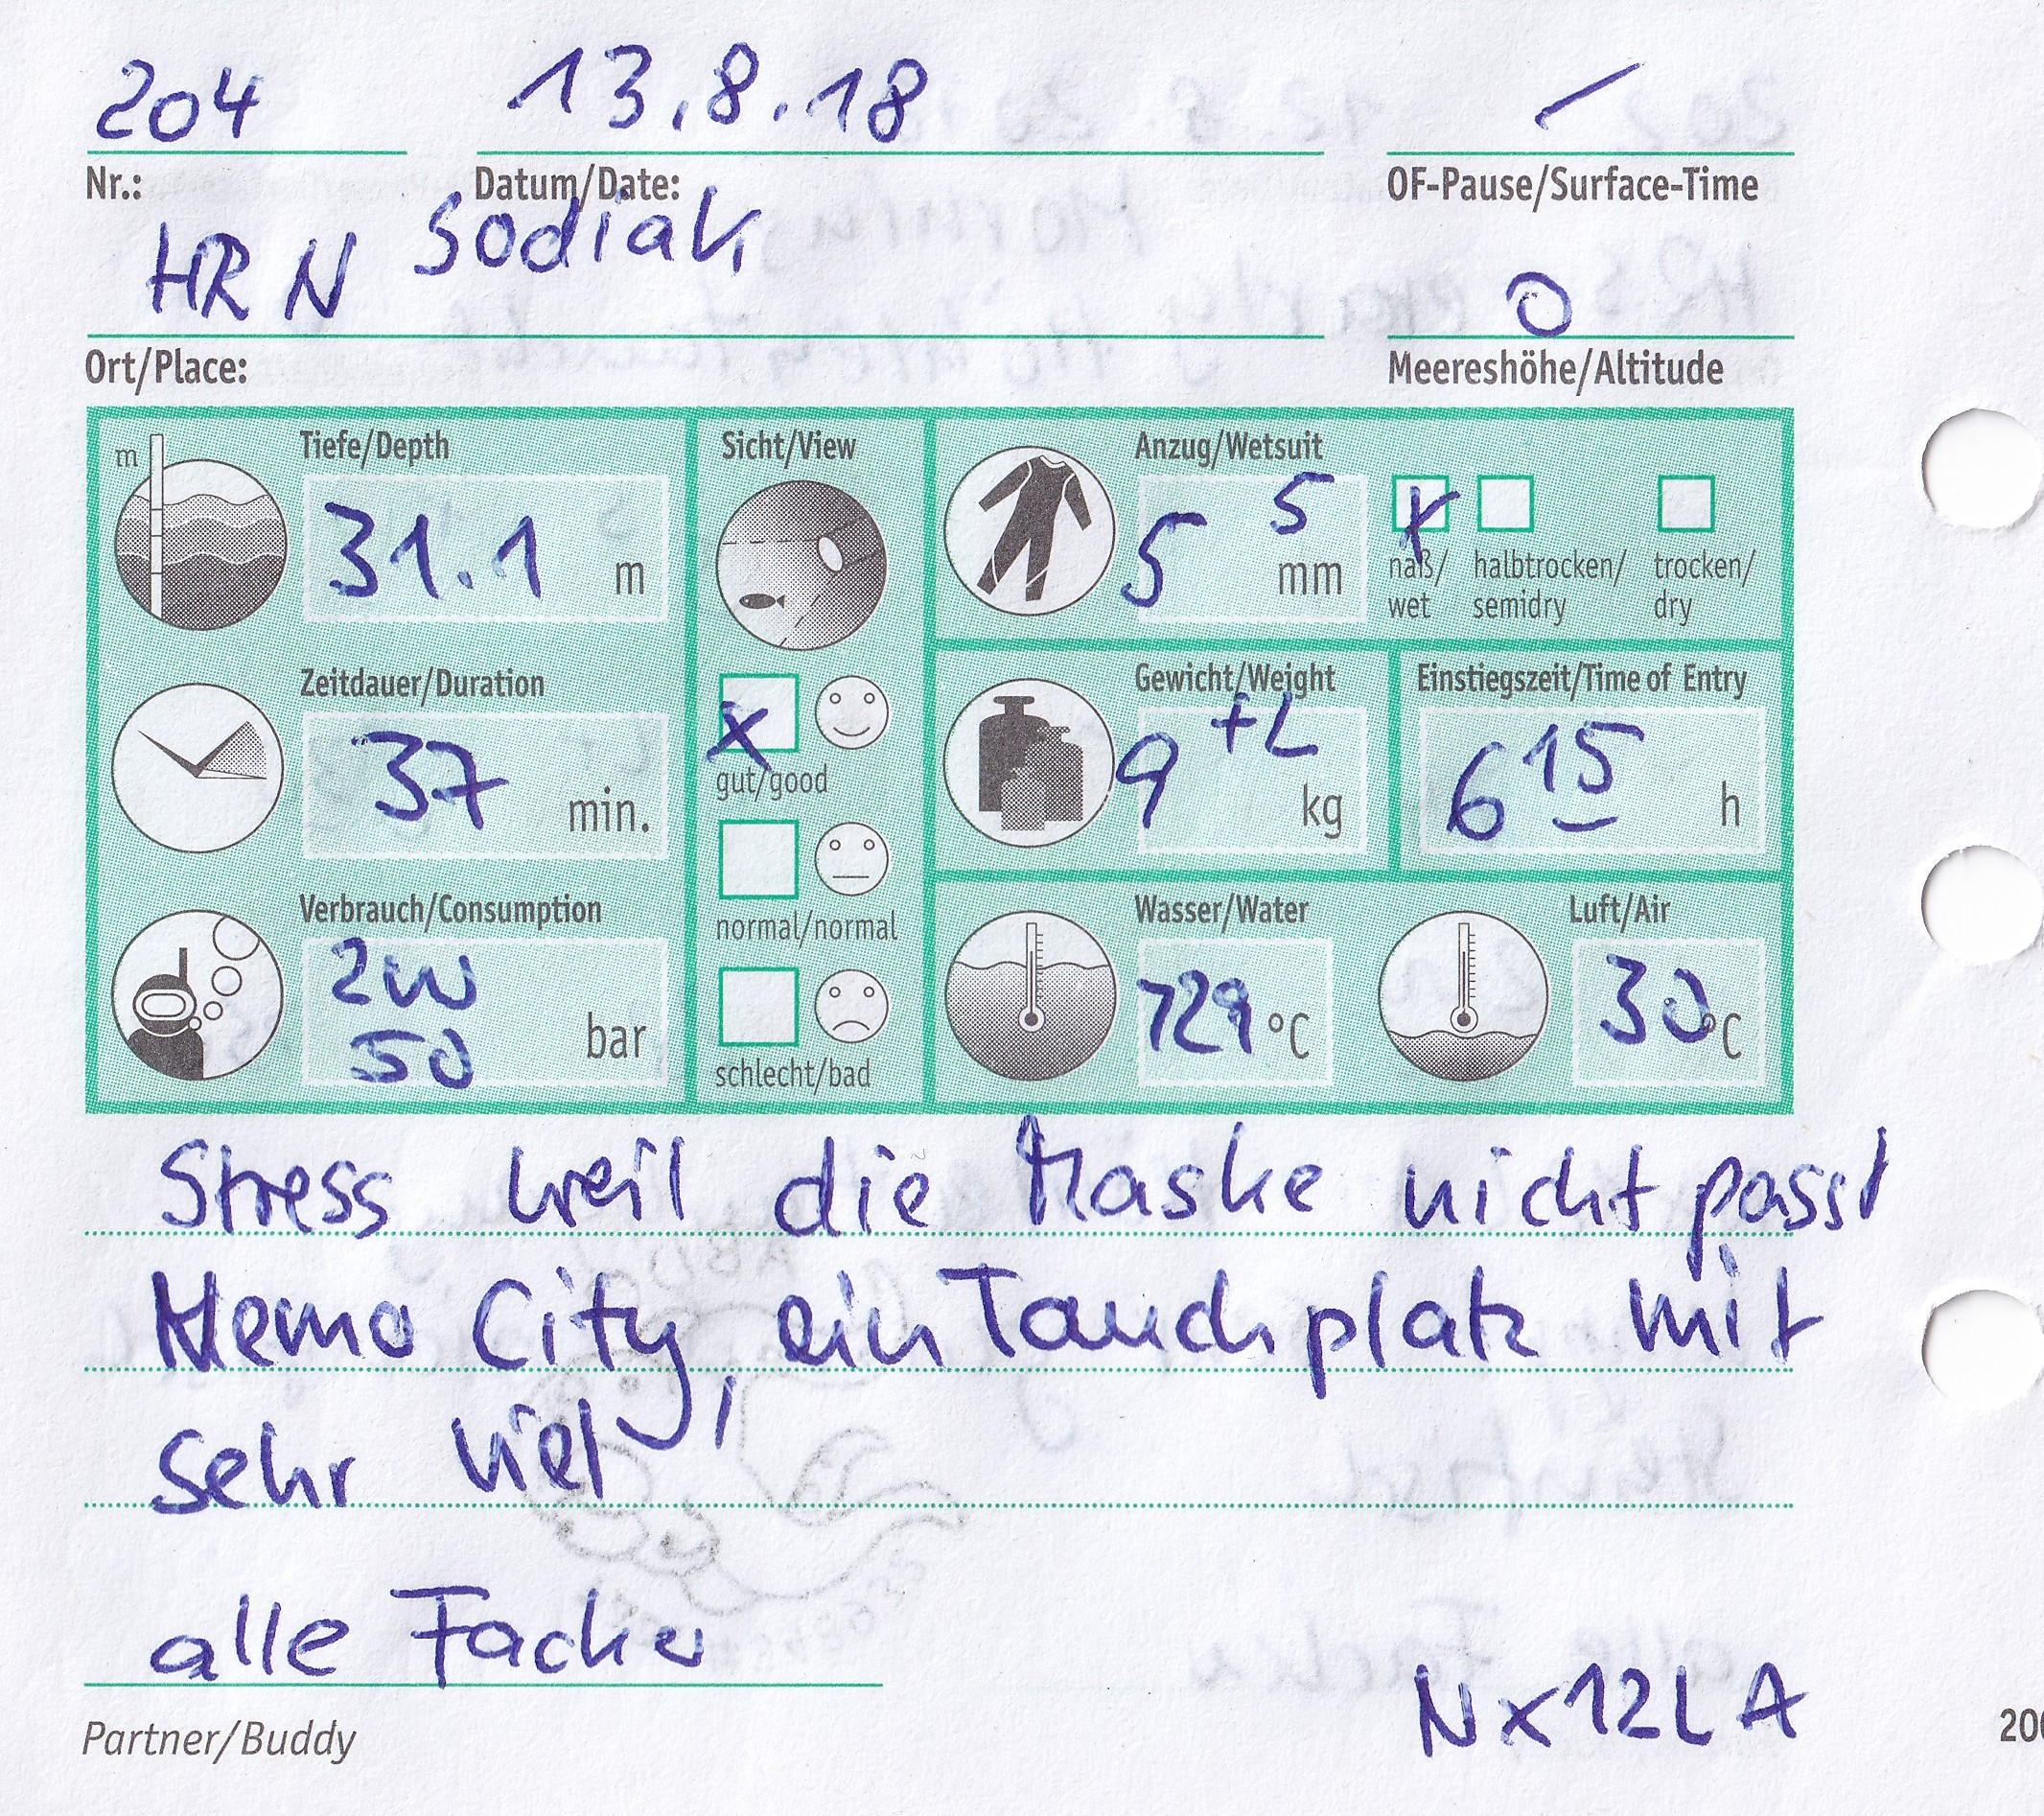 204 13.8.18 /
Nr.: Datum/Date: OF-Pause/Surface-Time
HR N Sodiak 0
Ort/Place: Meereshöhe/Altitude
Tiefe/Depth Sicht/View Anzug/Wetsuit
m 31.1 m 5 5 mm x naß/ halbtrocken/ trocken/
wet semidry dry
Zeitdauer/Duration Gewicht/Weight Einstiegszeit/Time of Entry
37 min. x 9 +L kg 6 15 h
gut/good
Verbrauch/Consumption normal/normal Wasser/Water Luft/Air
200
50 bar 29 °C 30 °C
schlecht/bad
Stress weil die Maske nicht passt
Nemo City, ein Tauchplatz mit
sehr viel
alle Facker
Partner/Buddy
N x 12L A